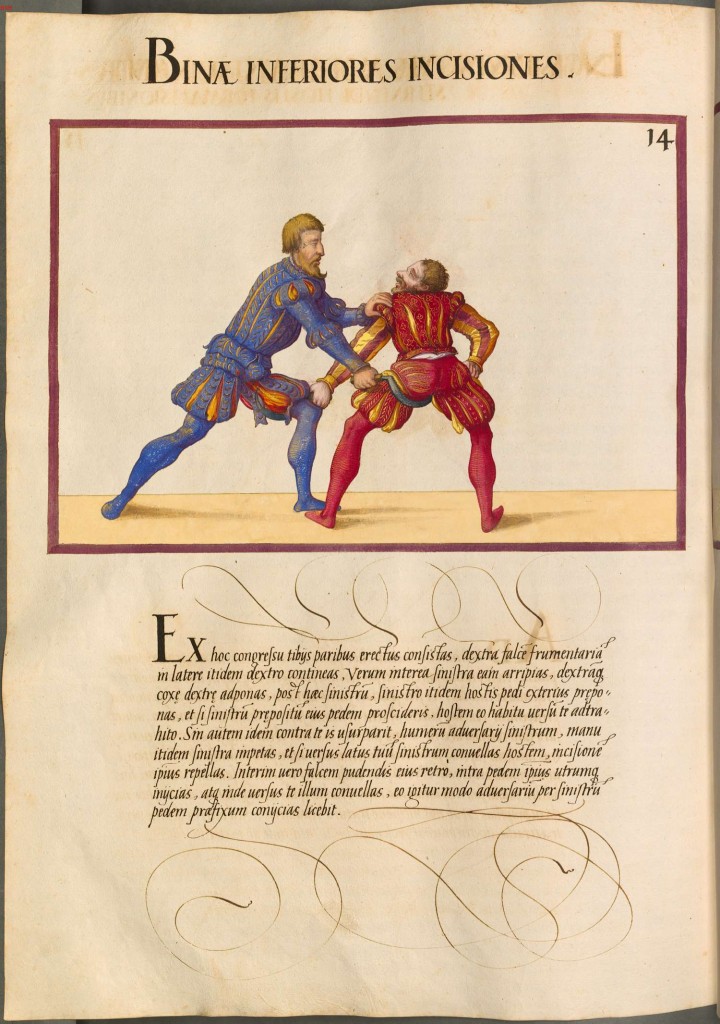 BINÆ INFERIORES INCISIONES.
14
Ex hoc congressu tibijs paribus erectus consistas, dextra falcē frumentariā
in latere itidem dextro contineas, Verum interea sinistra eam arripias, dextrāq
coxę dextrę adponas, post hæc sinistrū, sinistro itidem hostis pedi exterius prępo=
nas, et si sinistrū prępositū eius pedem proscideris, hostem eo habitu versū te adtra=
hito. Sin autem idem contra te is usurparit, humerū adversarij sinistrum, manu
itidem sinistra impetas, et si versus latus tuū sinistrum conuellas hostem, incisionē
ipius repellas. Interim vero falcem pudendis eius retrò, intra pedem ipius utrumq
inijcias, atq inde versus te illum conuellas, eo igitur modo adversariū per sinistrū
pedem præfixum conijcias licebit.